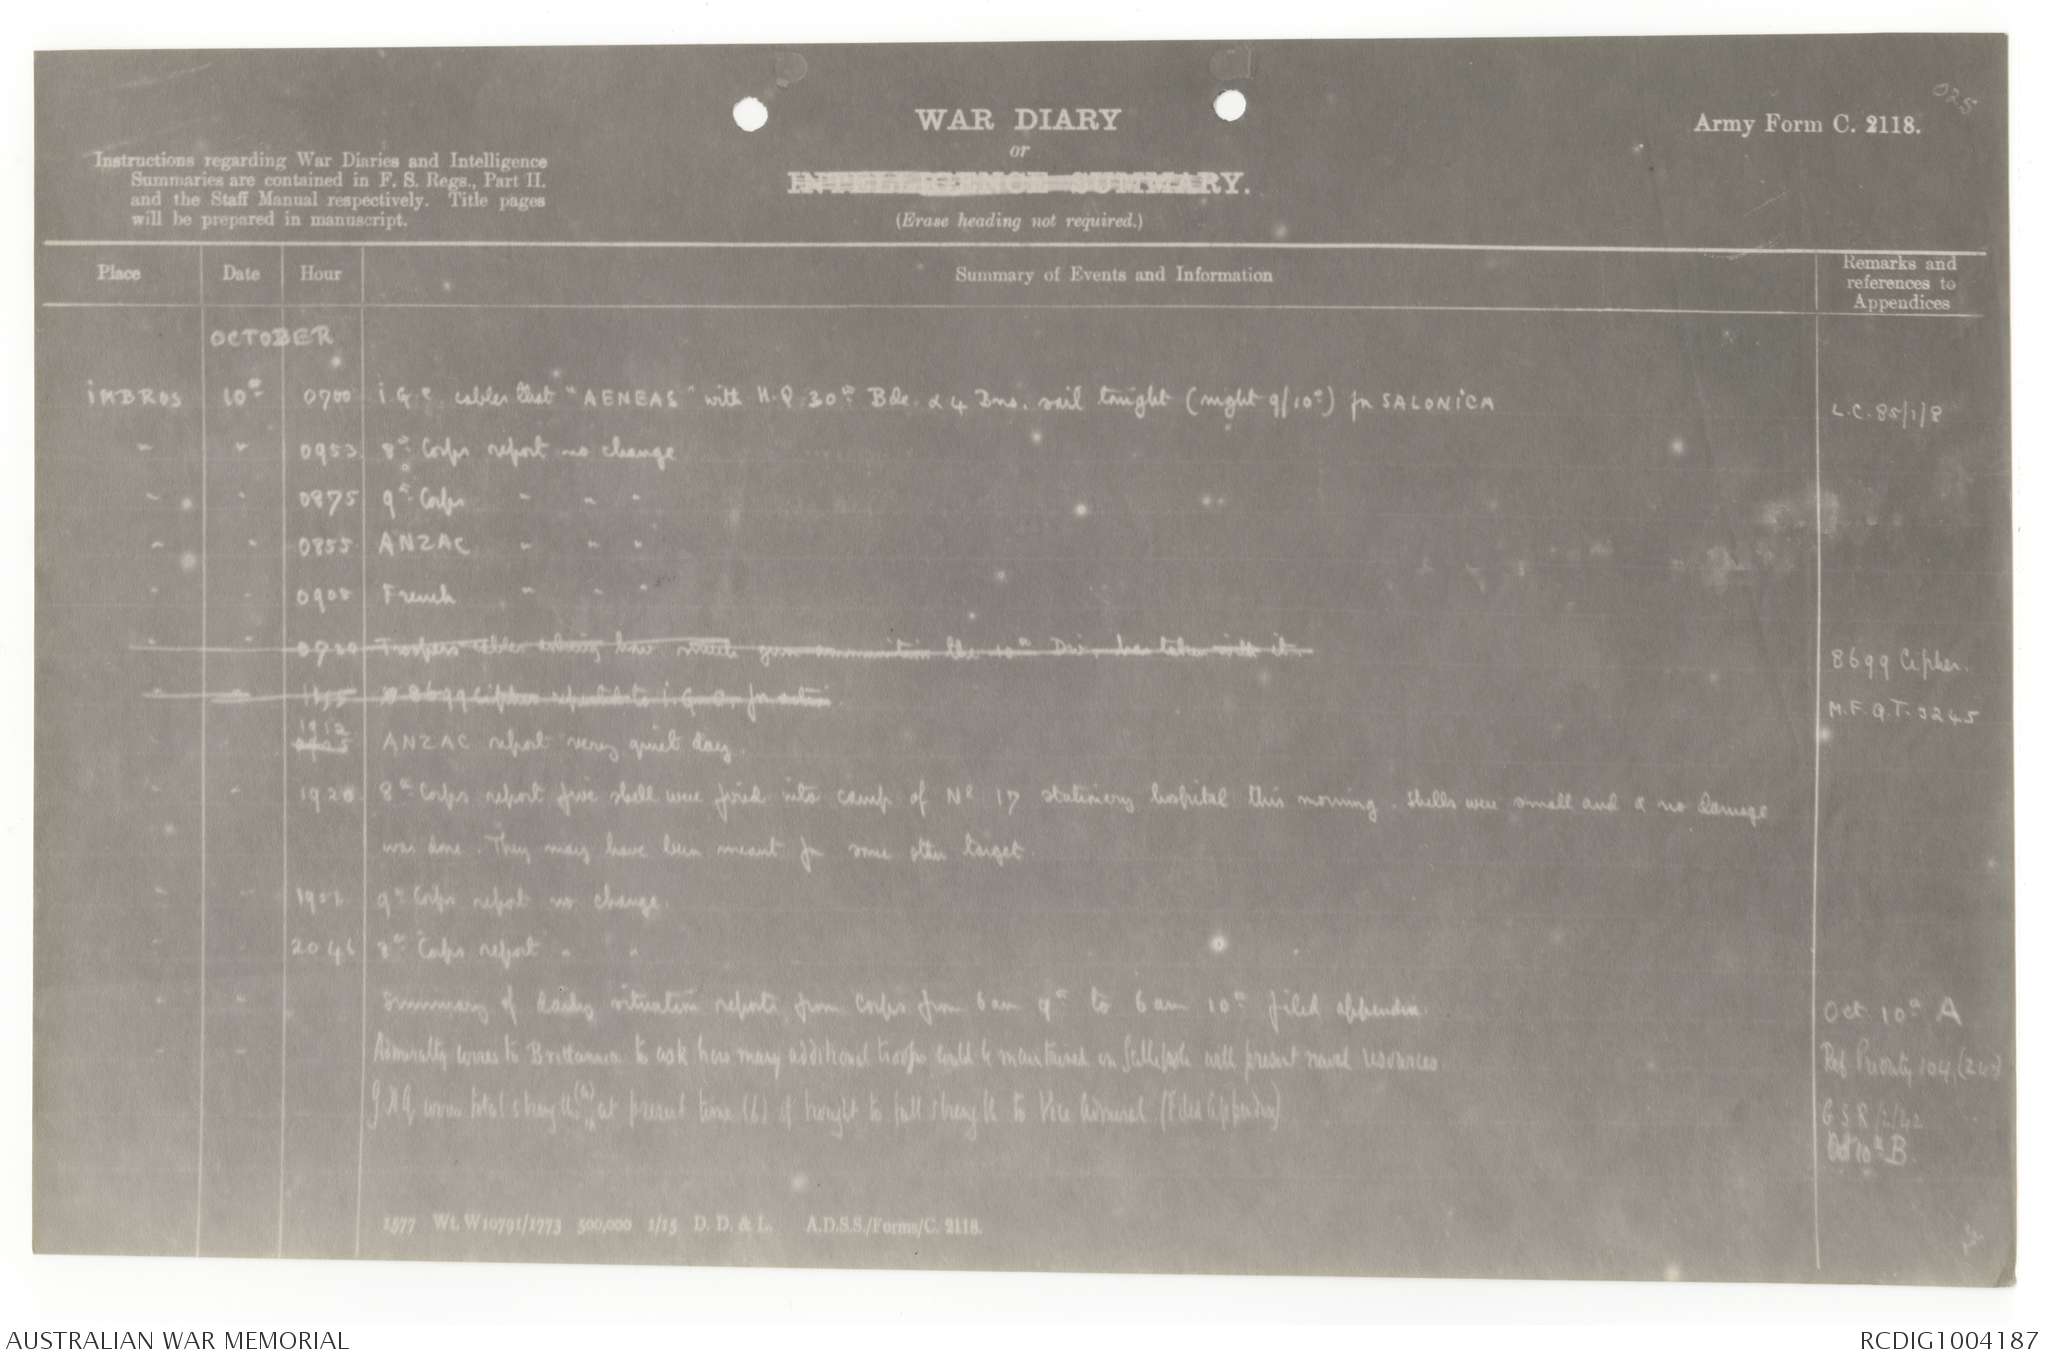 025
WAR DIARY
or
INTELLIGENCE SUMMARY.
(Erase heading not required.)
Army Form C. 2118.
Instructions regarding War Diaries and Intelligence
Summaries are contained in F. S. Regs., Part II.
and the Staff Manual respectively. Title pages
will be prepared in manuscript.
Place Date Hour Summary of Events and Information Remarks and references to Appendices
OCTOBER
IMBROS 10th 0700 I.G.C. cables that "AENEAS" with H.Q. 30th Bde. & 4 Bns. sail tonight (night 9/10th) for SALONICA L.C. 85/1/8
" " 0953 8th Corps report no change
" " 0875 9th Corps " " "
" " 0855 ANZAC " " "
" " 0908 French " " "
" " 0720 Troopers cables asking how much gun ammunition the 10th Div. has taken with it. 8699 Cipher.
" " 1155 8699 Cipher repeated to I.G.C. for action M.F.Q.T. 3245
" 1912 ANZAC report very quiet day.
" " 1920 8th Corps report five shell were fired into camp of No 17 stationery hospital this morning. Shells were small and & no damage
was done. They may have been meant for some other target.
" " 1902 9th Corps report no change.
" " 2046 8th Corps report " "
" " Summary of daily situation reports from Corps from 6 am 9th to 6 am 10th filed appendix. Oct 10th A
" " Admiralty wires to Brittannia to ask how many additional troops could be maintained on Gallipoli with present naval resources. Ref Priority 104,
total strength (a) at present time (b) if brought to full strength to Vice Admiral (Filed Appendix) G S R
Oct 10th B
1577 Wt. W10791/1773 500,000 1/15 D. D. & L. A.D.S.S./Forms/C. 2118.
AUSTRALIAN WAR MEMORIAL
RCDIG1004187